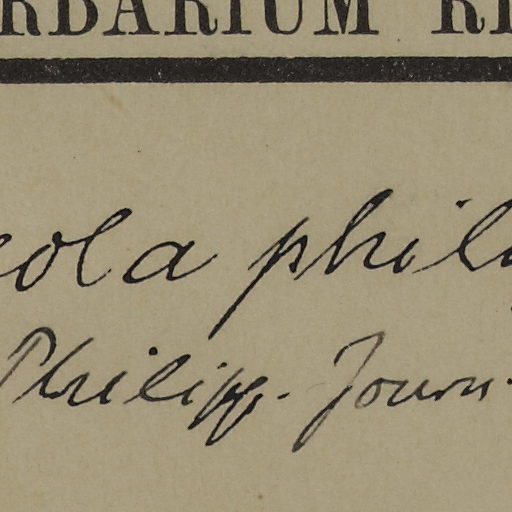 RBARIUM RE
cola phili
Philipp. Journ.